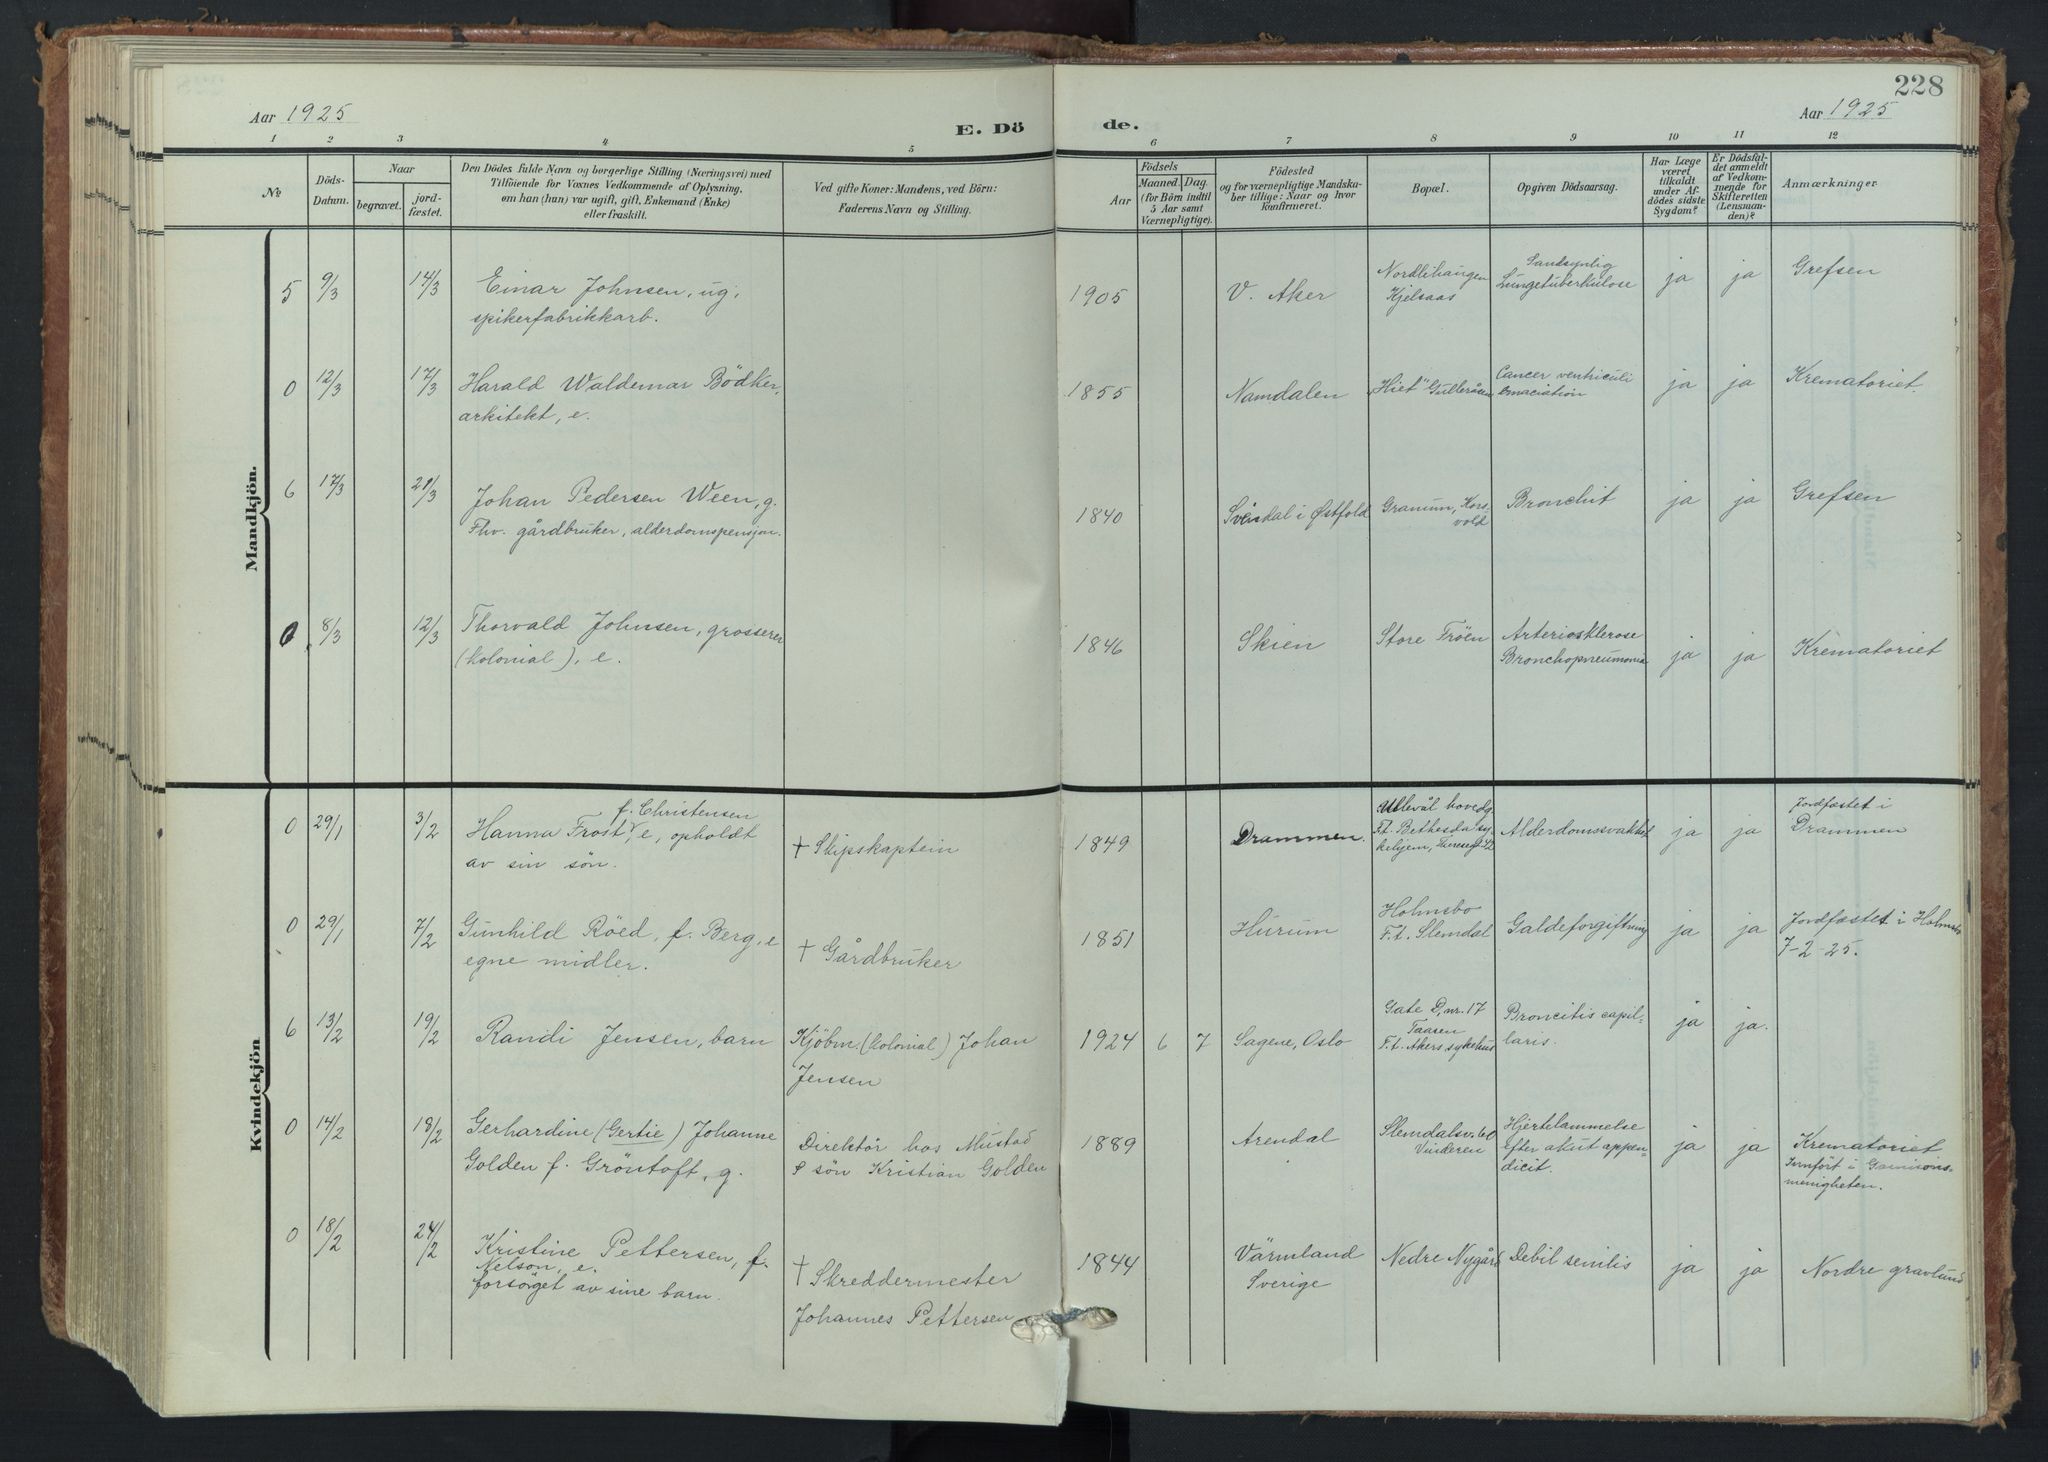 Aar 1925
E. Dö
1 2 3 4 5
№
Döds-
Datum.
Naar
begravet.
jord-
fæstet.
Den Dödes fulde Navn og borgerlige Stilling (Næringsvei) med
Tilföiende for Voxnes Vedkommende af Oplysning,
om han (hun) var ugift, gift, Enkemand (Enke)
eller fraskilt.
Ved gifte Koner: Mandens, ved Börn:
Faderens Navn og Stilling.
Mandkjön.
5 9/3 14/3 Einar Johnsen, ug,
spikerfabrikkarb.
0 12/3 17/3 Harald Waldemar Bödker,
arkitekt, e.
6 17/3 21/3 Johan Pedersen Ween, g.
Fhv. gårdbruker, alderdomspensjon.
0 8/3 12/3 Thorvald Johnsen, grosserer
(kolonial), e.
Kvindekjön
f. Christensen
0 29/1 3/2 Hanna Frost, e, opholdt
av sin sön.
+ Skipskaptein
0 29/1 7/2 Gunhild Röed, f. Berg, e
egne midler.
+ Gårdbruker
6 13/2 19/2 Randi Jensen, barn
Kjöbm. (kolonial) Johan
Jensen
0 14/2 18/2 Gerhardine (Gertie) Johanne
Golden f. Gröntoft, g.
Direktör hos Mustad
& sön Kristian Golden
0 18/2 24/2 Kristine Pettersen, f.
Nelson, e.
forsörget av sine barn.
+ Skreddermester
Johannes Pettersen
228
de.
Aar 1925
6 7 8 9 10 11 12
Aar
Födsels
Maaned. Dag.
(for Börn indtil
5 Aar samt
Værnepligtige).
Födested
og for værnepligtige Mandska-
ber tillige: Naar og hvor
konfirmeret.
Bopæl.
Opgiven Dödsaarsag.
Har Læge
været
tilkaldt
under Af-
dödes sidste
Sygdom?
Er Dödsfal-
det anmeldt
af Vedkom-
mende for
Skifteretten
(Lensman-
den)?
Anmærkninger
1905 V. Aker
Nordlihaugen
Kjelsaas
Sandsynlig
Lungetuberkulose
ja ja Grefsen
1855 Namdalen
"Hiet" Gulleråsen
Cancer ventriculi
emaciation
ja ja Krematoriet.
1840 Svindal i Østfold
Granum, Kors-
vold
Bronchit
ja ja Grefsen
1846 Skien
Store Tröen
Arteriosklerose
Bronchopneumonia
ja ja Krematoriet
1849 Drammen.
Ullevål hovedg.
F.t. Bethesda sy-
kehjem,
Alderdomssvakhet
ja ja
Jordfæstet i
Drammen
1851 Hurum
Holmsbo
F.t. Slemdal
Galdeforgiftning
ja ja
Jordfæstet i Holmsbo
7-2-25.
1924 6 7 Sagene, Oslo
Gate D, nr. 17
Taasen
F.t. Akers sykehus
Broncitis capil-
laris.
ja ja.
1889 Arendal
Slemdalsv. 60
Vinderen
Hjertelammelse
efter akut appen-
dicit.
ja ja
Krematoriet
Innfört i Garnisons-
menigheten.
1844 Värmland
Sverige
Nedre Nygård
Debil senilis
ja ja Nordre gravlund